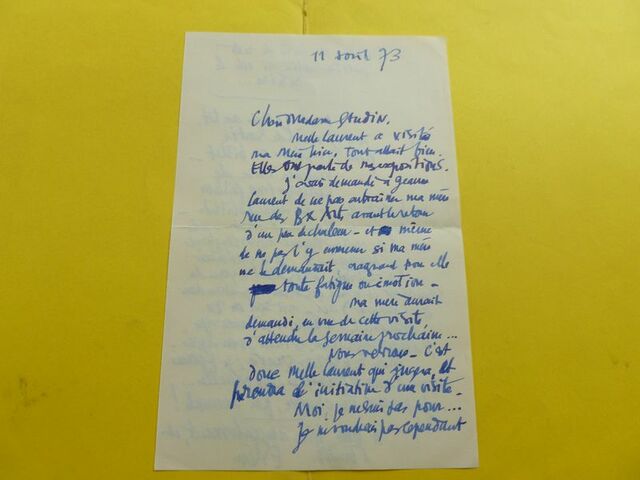 11 avril 73
Chère Madame Gaudin,
Melle Laurent a visité
ma Mère hier, tout allait bien.
Elles ont parlé de mes expositions.
J'avais demandé à
Laurent de ne pas entraîner ma mère
rue des Bx Arts avant le retour
d'un peu de chaleur - et même
de ne pas l'y emmener si ma mère
ne le demandait, craignant pour elle
toute fatigue ou émotion -
ma mère aurait
demandé, en vue de cette visite
d'attendre la semaine prochaine...
Nous verrons - C'est
donc Melle Laurent qui jugera, et
prendra l'initiative d'une visite -
Moi, je ne suis pas pour...
Je ne voudrais pas cependant